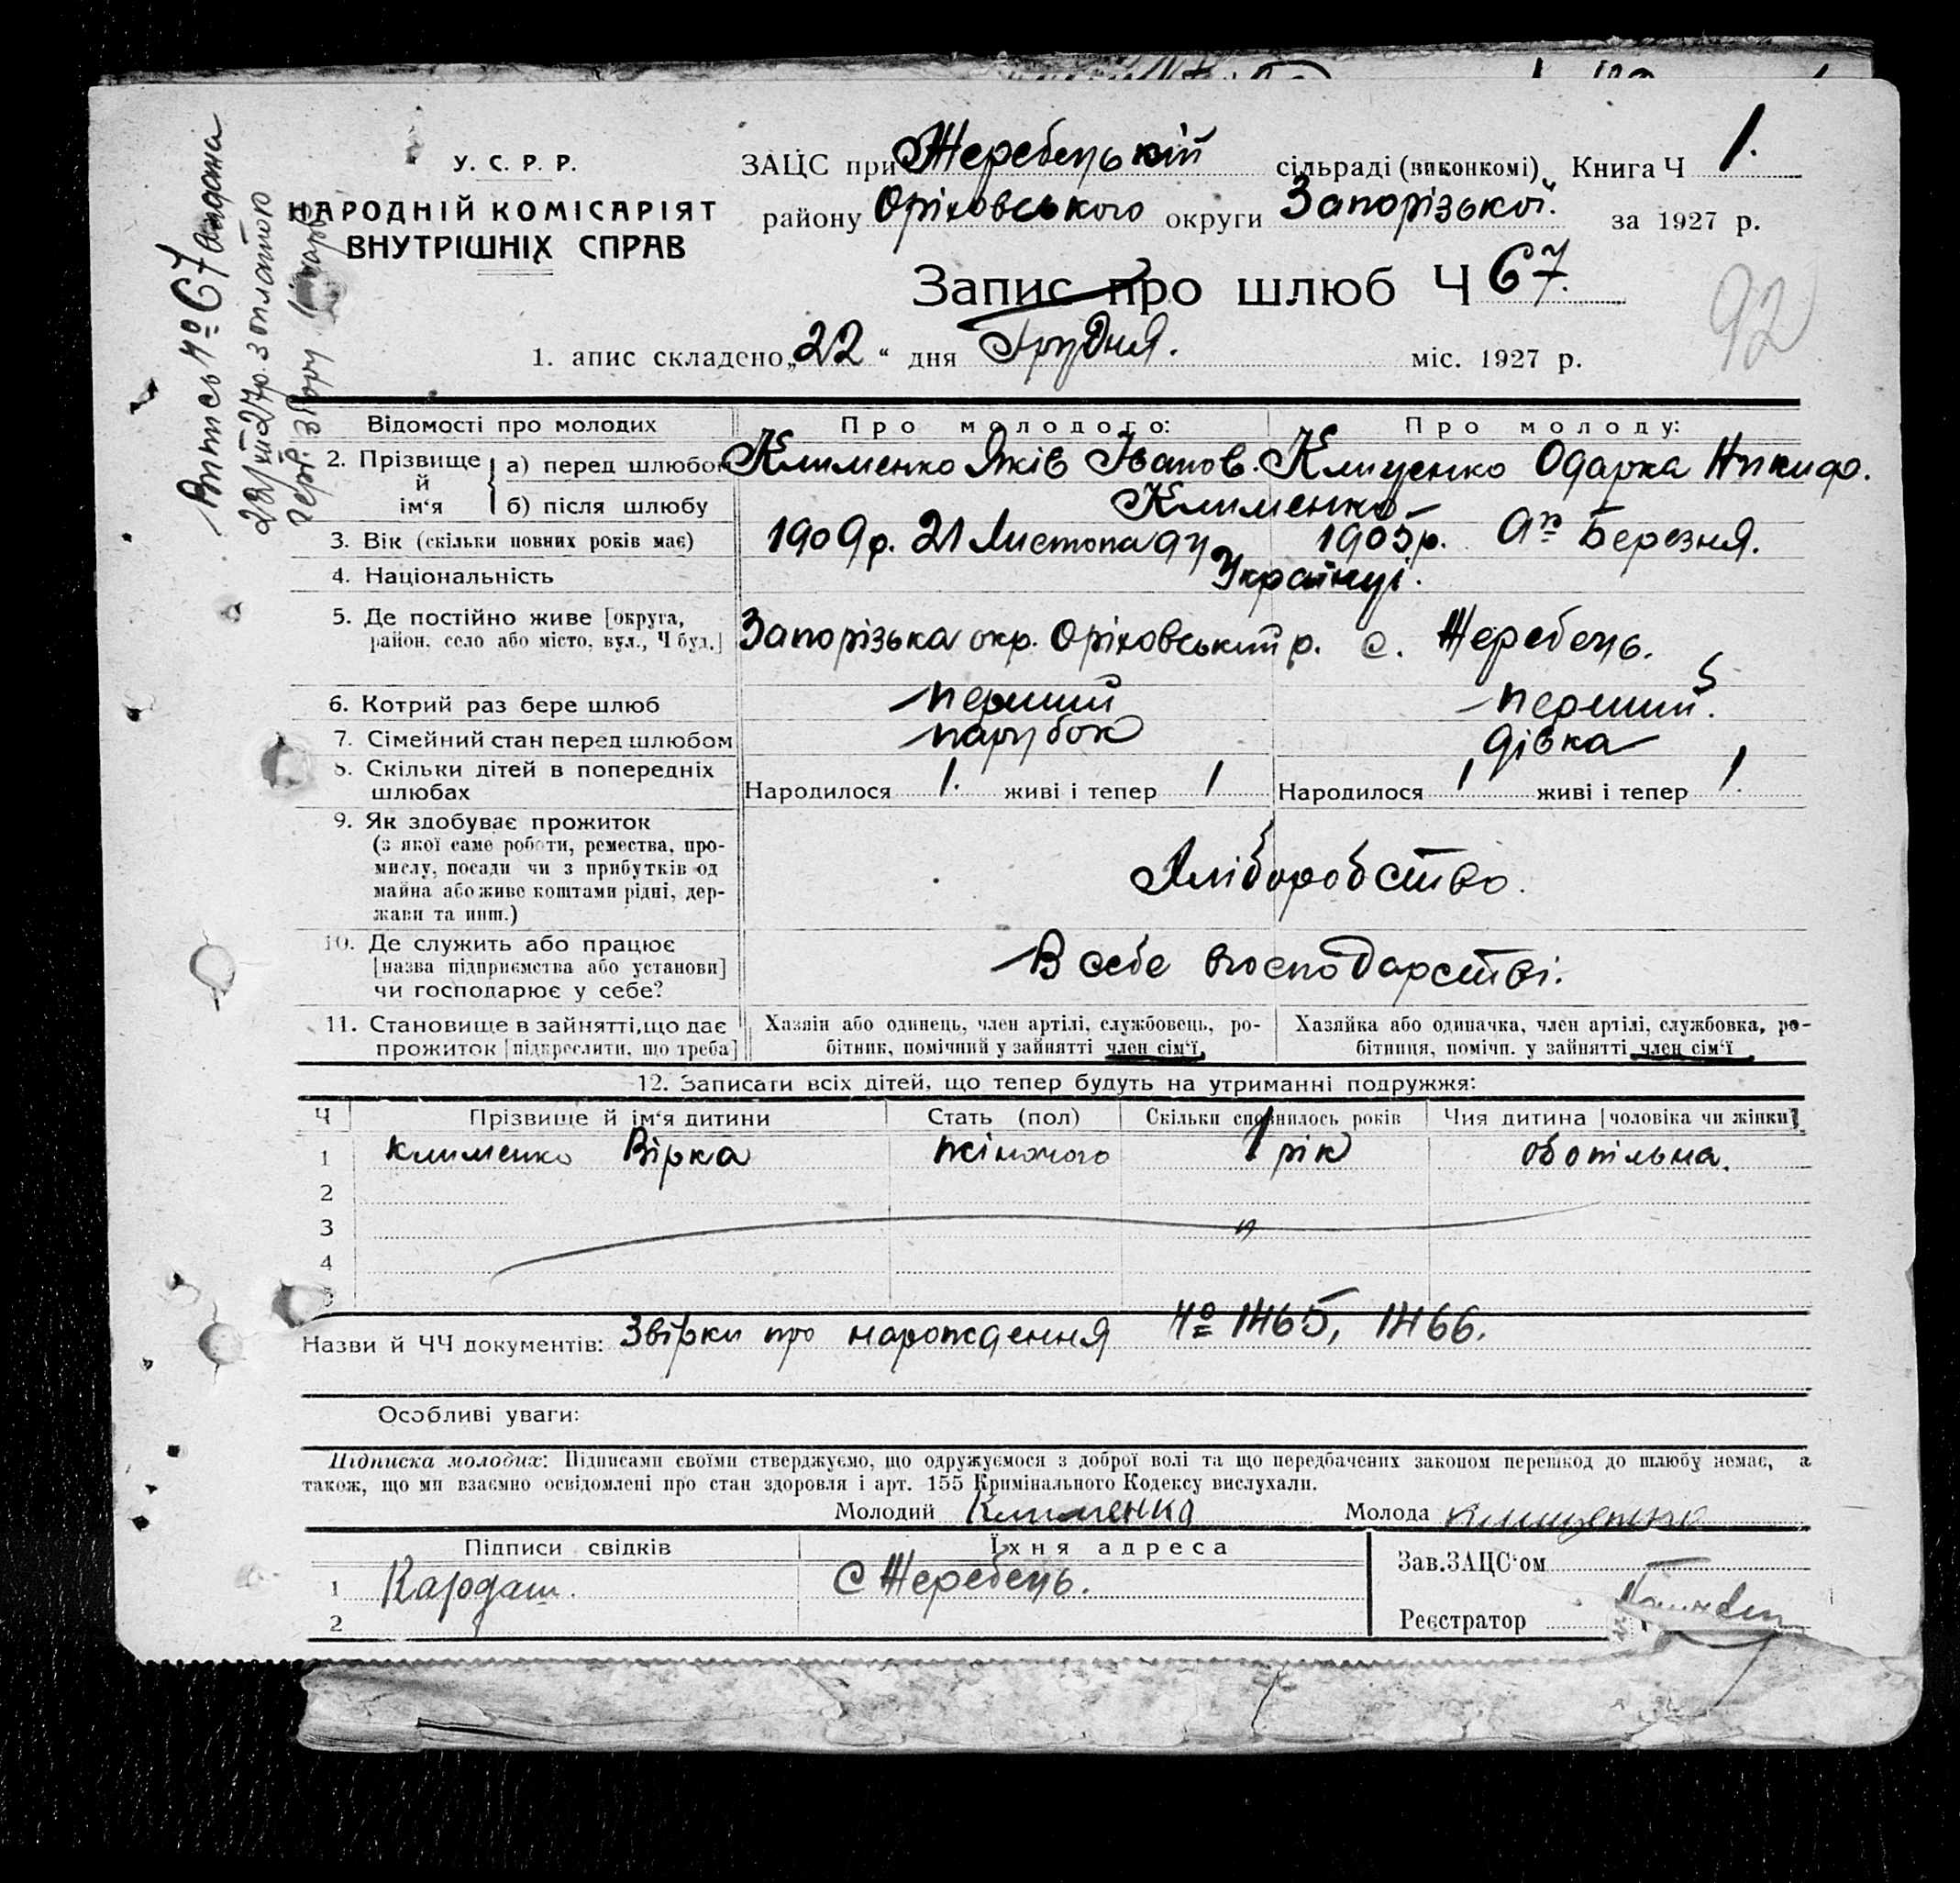 У. С. Р. Р.
НАРОДНІЙ КОМІСАРІЯТ
ВНУТРІШНІХ СПРАВ
ЗАЦС при Жеребецькій сільраді (виконкомі) Книга Ч 1.
району Оріховського округи Запорізької. за 1927 р.
Запис про шлюб Ч 67.
92
1. апис складено „22“ дня Грудня. міс. 1927 р.
Впись № 67 видана
22/XII 27р. з оплатою
герб. збору
Відомості про молодих Про молодого: Про молоду:
2. Прізвище й ім‘я а) перед шлюбом Клименко Яків Іванов. Клищенко Одарка Никиф.
б) після шлюбу Клименко
3. Вік (скільки повних років має) 1909р. 21 Листопаду 1905р. 9го Березня.
4. Національність Українці.
5. Де постійно живе [округа,
район, село або місто, вул., Ч буд.] Запорізька окр. Оріховський р. с. Жеребець.
6. Котрий раз бере шлюб перший перший.
7. Сімейний стан перед шлюбом парубок дівка
8. Скільки дітей в попередніх
шлюбах Народилося 1. живі і тепер 1 Народилося 1 живі і тепер 1.
9. Як здобуває прожиток
(з якої саме роботи, ремества, про-
мислу, посади чи з прибутків од
майна або живе коштами рідні, дер-
жави та инш.)
Хліборобство.
10. Де служить або працює
[назва підприємства або установи]
чи господарює у себе?
В себе господарстві.
11. Становище в зайнятті, що дає
прожиток [підкреслити, що треба]
Хазяін або одинець, член артілі, службовець, ро-
бітник, помічний у зайнятті член сім‘ї,
Хазяйка або одиначка, член артілі, службовка, ро-
бітниця, помічн. у зайнятті член сім‘ї
12. Записати всіх дітей, що тепер будуть на утриманні подружжя:
Ч Прізвище й ім‘я дитини Стать (пол) Скільки сповнилось років Чия дитина [чоловіка чи жінки]
1 Клименко Вірка жіночого 1 рік обопільна.
2
3 "
4
5
Назви й ЧЧ документів: Звірки про нарождення № 1465, 1466.
Особливі уваги:
Підписка молодих: Підписами своїми стверджуємо, що одружуємося з доброї волі та що передбачених законом перешкод до шлюбу немає, а
також, що ми взаємно освідомлені про стан здоровля і арт. 155 Кримінального Кодексу вислухали.
Молодий Клименко Молода Клищенко
Підписи свідків Їхня адреса
1 Кардаш. с Жеребець.
2
Зав.ЗАЦС‘ом
Реєстратор